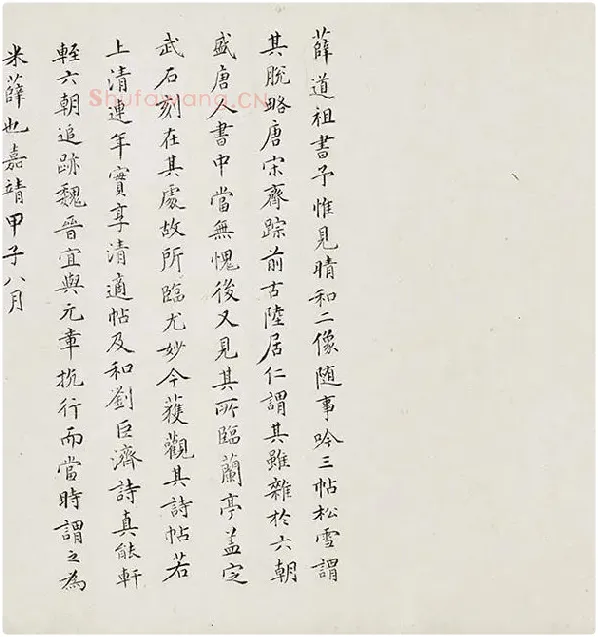 薛道祖書予惟見晴和二像随事吟三帖松雪謂
其脫略唐宋齊踪前古陸居仁謂其雖雜於六朝
盛唐人書中當無愧後又見其所臨蘭亭盖定
武石刻在其處故所臨尤妙今获觀其詩帖若
上清連年實享清適帖及和劉巨濟詩真能軒
輊六朝追跡魏晉宜與元章抗行而當時謂之為
米薛也嘉靖甲子八月
Shufawang.CN